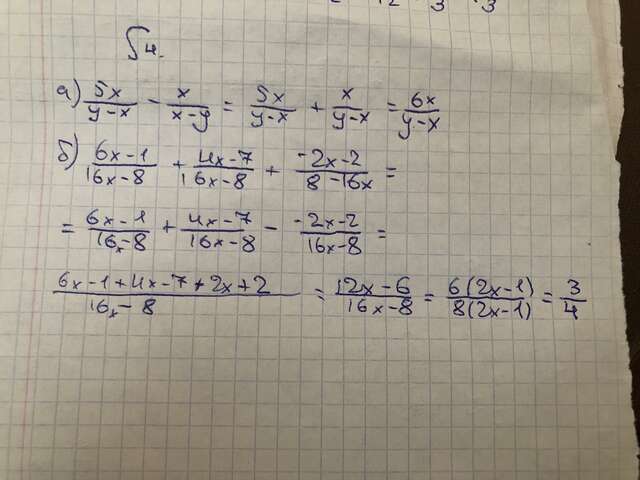 12 3 3
54.
а) 5x/(y-x) - x/(x-y) = 5x/(y-x) + x/(y-x) = 6x/(y-x)
б) (6x-1)/(16x-8) + (4x-7)/(16x-8) + (-2x-2)/(8-16x) =
= (6x-1)/(16x-8) + (4x-7)/(16x-8) - (-2x-2)/(16x-8) =
(6x-1+4x-7+2x+2)/(16x-8) = (12x-6)/(16x-8) = 6(2x-1)/8(2x-1) = 3/4